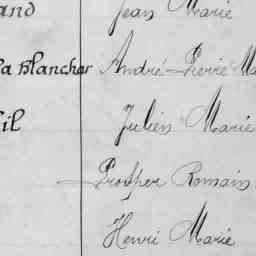 and Jean Marie
la Blanchar André Pierre Ma
il Julien Marie
Prosper Romain
Henri Marie